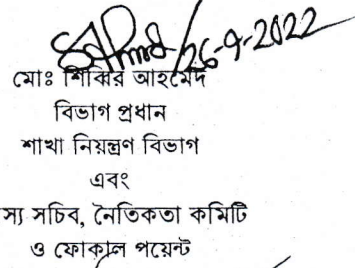 26-9-2022
মোঃ শিব্বির আহমেদ
বিভাগ প্রধান
শাখা নিয়ন্ত্রণ বিভাগ
এবং
স্য সচিব, নৈতিকতা কমিটি
ও ফোকাল পয়েন্ট